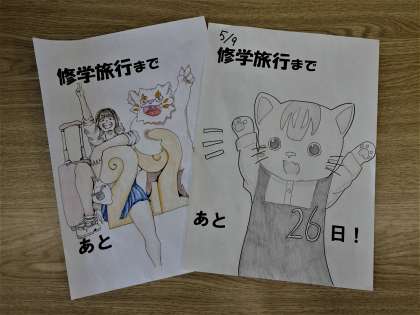 修学旅行まで
あと
5/9
修学旅行まで
あと 26 日！